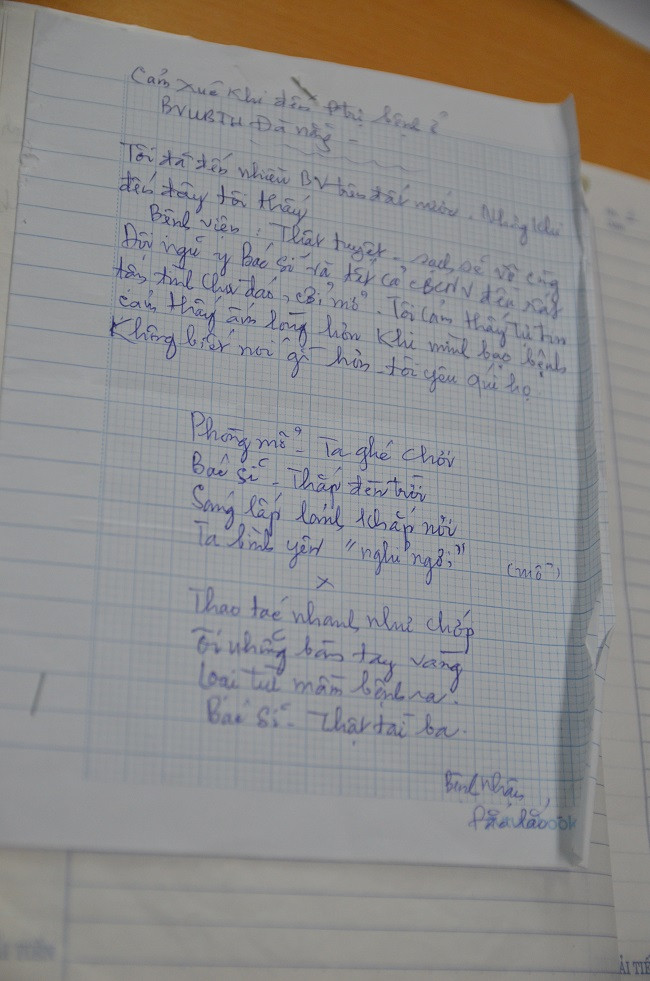 Cảm xúc khi đến trị bệnh ở
BVUBTH Đà Nẵng -
Tôi đã đến nhiều BV trên đất nước. Nhưng khi
đến đây tôi thấy
Bệnh viện: Thật tuyệt - sạch sẽ vô cùng
Đội ngũ y Bác sĩ và tất cả CBCNV đều rất
tận tình chu đáo, cởi mở. Tôi cảm thấy tự tin
cảm thấy ấm lòng hơn khi mình bạo bệnh
Không biết nói gì hơn - tôi yêu quí họ
Phòng mổ - Ta ghé chơi
Bác sĩ - Thắp đèn trời
Sáng lấp lánh khắp nơi
Ta bình yên "nghỉ ngơi" (mổ)
x
Thao tác nhanh như chớp
Ôi những bàn tay vàng
Loại trừ mầm bệnh ra.
Bác sĩ - Thật tài ba.
Bệnh nhân,
ẢI TIẾ